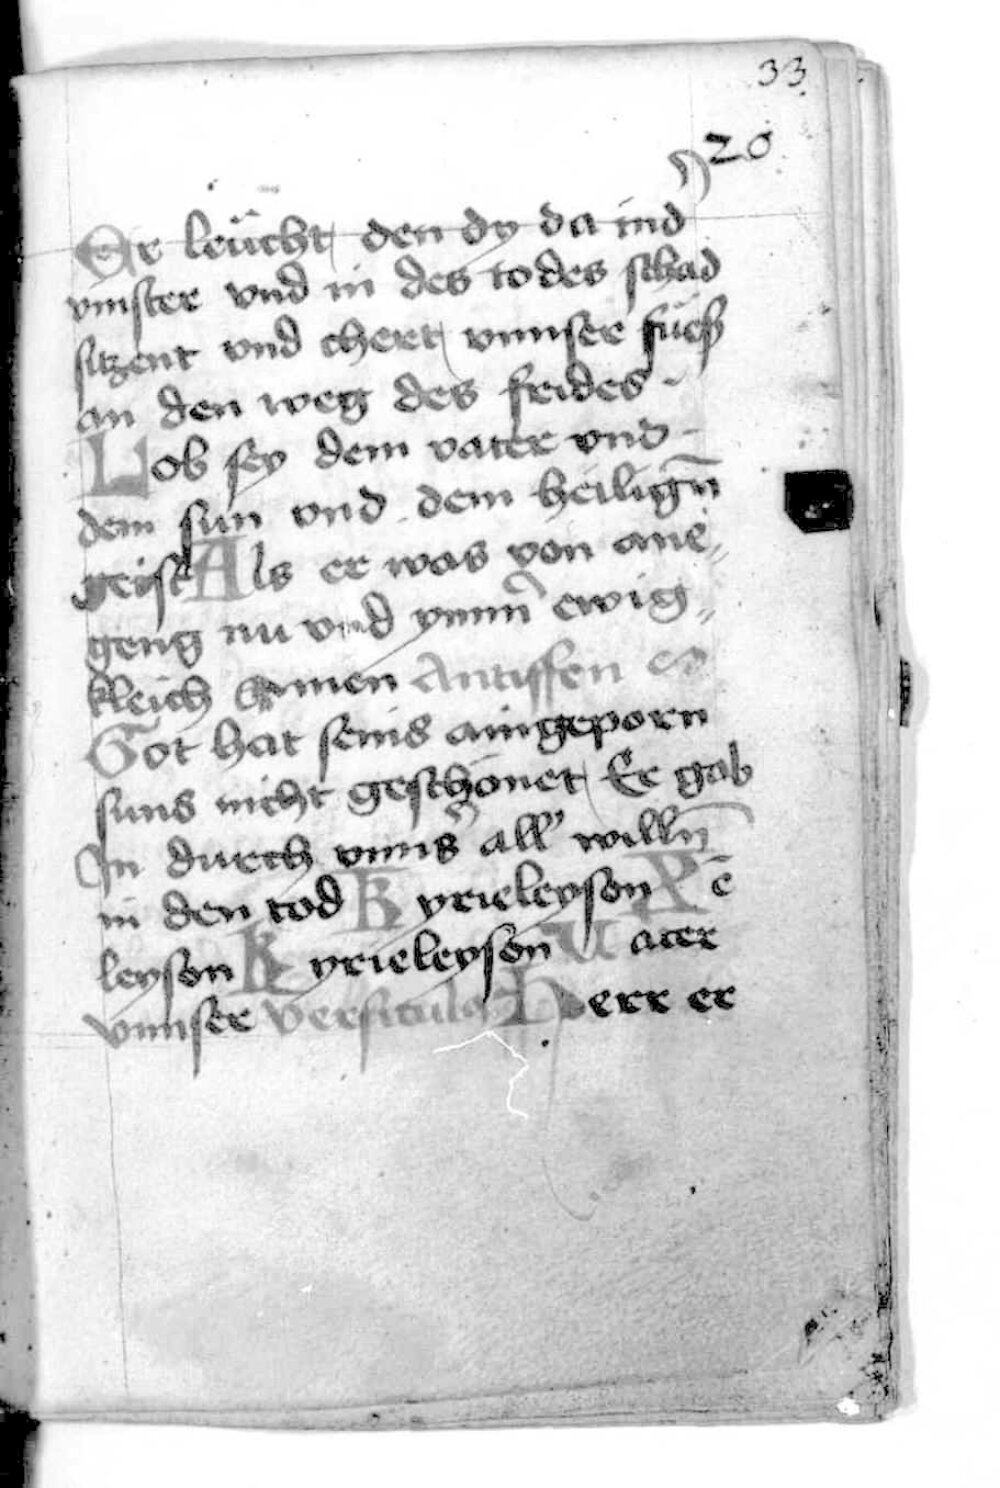 33
20
Er leücht den dy da ind
vinster vnd in des todes schad
sitzent vnd chert vnnser füeß
an den weg des frides
Lob sey dem vater vnd
dem sun vnd dem heiligñ
geist Als er was von ane
geng nu vnd ymm͛ ewig
kleich Amen Antiffen
Got hat seins aingeporn
suns nicht geschönet Er gab
In durch vnns͛ all' willñ
in den tod Kyrieleyson Xp̄ē
leyson Kyrieleyson Uater
vnnser Versiculus Herr er